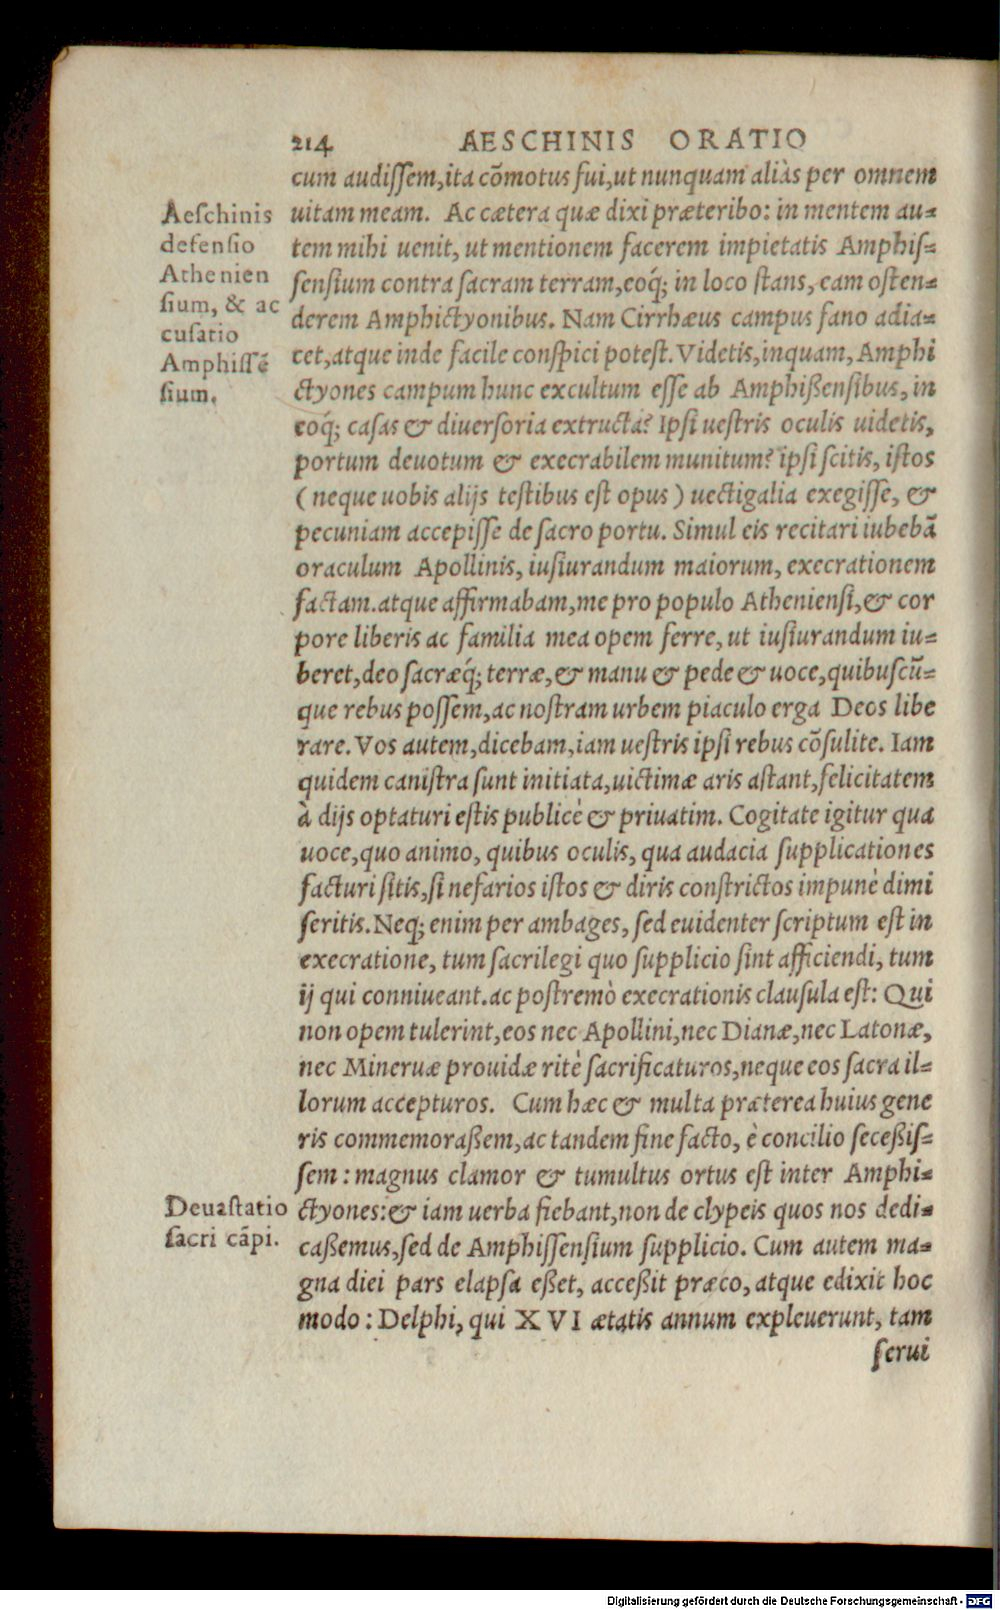 214 AESCHINIS ORATIO
cum audissem, ita cõmotus fui, ut nunquam aliàs per omnem
uitam meam. Ac cætera quæ dixi præteribo: in mentem au-
tem mihi uenit, ut mentionem facerem impietatis Amphis-
sensium contra sacram terram, eoq́; in loco stans, eam osten-
derem Amphictyonibus. Nam Cirrhæus campus fano adia-
cet, atque inde facile conspici potest. Videtis, inquam, Amphi
ctyones campum hunc excultum esse ab Amphißensibus, in
eoq́; casas & diuersoria extructa? Ipsi uestris oculis uidetis,
portum deuotum & execrabilem munitum? ipsi scitis, istos
(neque uobis alijs testibus est opus) uectigalia exegisse, &
pecuniam accepisse de sacro portu. Simul eis recitari iubebã
oraculum Apollinis, iusiurandum maiorum, execrationem
factam. atque affirmabam, me pro populo Atheniensi, & cor
pore liberis ac familia mea opem ferre, ut iusiurandum iu-
beret, deo sacræq́; terræ, & manu & pede & uoce, quibuscũ-
que rebus possem, ac nostram urbem piaculo erga Deos libe
rare. Vos autem, dicebam, iam uestris ipsi rebus cõsulite. Iam
quidem canistra sunt initiata, uictimæ aris astant, felicitatem
à dijs optaturi estis publicè & priuatim. Cogitate igitur qua
uoce, quo animo, quibus oculis, qua audacia supplicationes
facturi sitis, si nefarios istos & diris constrictos impunè dimi
seritis. Neq; enim per ambages, sed euidenter scriptum est in
execratione, tum sacrilegi quo supplicio sint afficiendi, tum
ij qui conniueant. ac postremò execrationis clausula est: Qui
non opem tulerint, eos nec Apollini, nec Dianæ, nec Latonæ,
nec Mineruæ prouidæ ritè sacrificaturos, neque eos sacra il-
lorum accepturos. Cum hæc & multa præterea huius gene
ris commemoraßem, ac tandem fine facto, è concilio seceßis-
sem: magnus clamor & tumultus ortus est inter Amphi-
ctyones: & iam uerba fiebant, non de clypeis quos nos dedi-
caßemus, sed de Amphissensium supplicio. Cum autem ma-
gna diei pars elapsa eßet, acceßit præco, atque edixit hoc
modo: Delphi, qui XVI ætatis annum expleuerunt, tam
serui
Aeschinis
defensio
Athenien
sium, & ac
cusatio
Amphissẽ
sium.
Deuastatio
sacri cãpi.
Digitalisierung gefördert durch die Deutsche Forschungsgemeinschaft - DFG